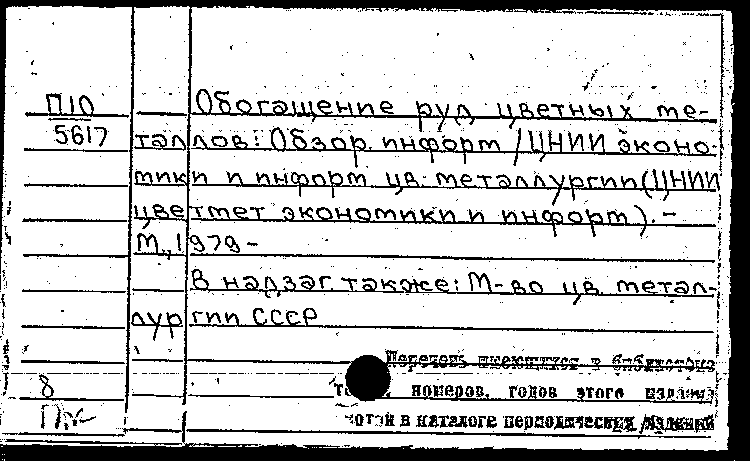 П10
5617
Обогащение руд цветных ме-
таллов: Обзор. информ / ЦНИИ эконо-
мики и информ цв. металлургии (ЦНИИ
цветмет экономики и информ). -
М., 1979 -
В надзаг. также: М-во цв. метал-
лургии СССР
Перечень имеющихся в библиотеке
номеров, годов этого издания
в каталоге периодических изданий
8